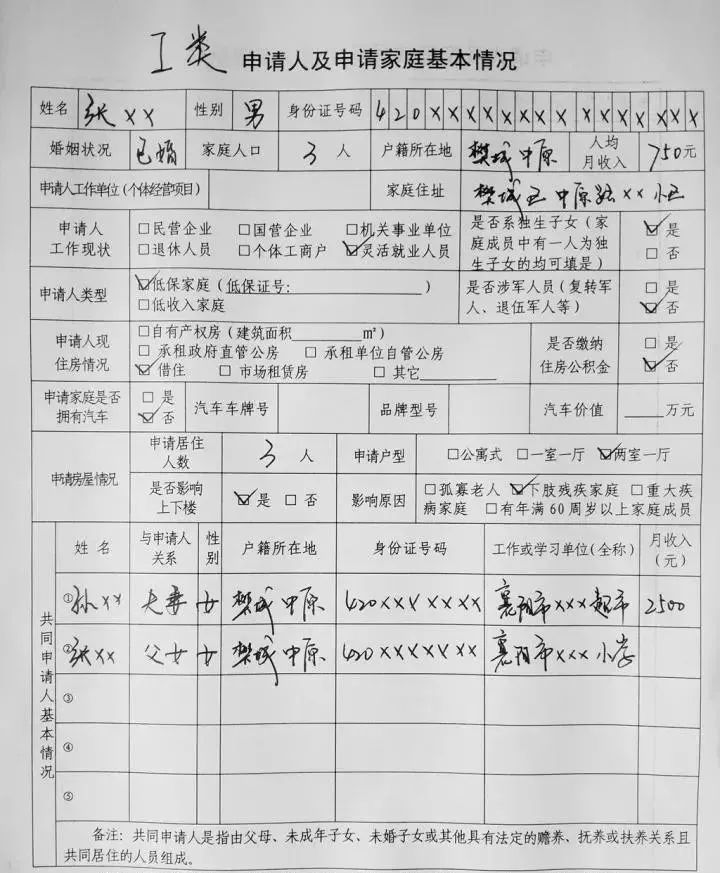 工类 申请人及申请家庭基本情况
姓名 张×× 性别 男 身份证号码 420×××××××××××××××
婚姻状况 已婚 家庭人口 3 人 户籍所在地 樊城中原 人均月收入 750元
申请人工作单位(个体经营项目) 家庭住址 樊城区中原路××小区
申请人工作现状 □民营企业 □国营企业 □机关事业单位 是否系独生子女(家庭成员中有一人为独生子女的均可填是) ☑是
□退休人员 □个体工商户 ☑灵活就业人员 □否
申请人类型 ☑低保家庭(低保证号:____) 是否涉军人员(复转军人、退伍军人等) □是
□低收入家庭 ☑否
申请人现住房情况 □自有产权房(建筑面积____㎡) 是否缴纳住房公积金 □是
□承租政府直管公房 □承租单位自管公房
☑借住 □市场租赁房 □其它____ ☑否
申请家庭是否拥有汽车 □是 ☑否 汽车车牌号 品牌型号 汽车价值 ____万元
申请房屋情况 申请居住人数 3 人 申请户型 □公寓式 □一室一厅 ☑两室一厅
是否影响上下楼 ☑是 □否 影响原因 □孤寡老人 ☑下肢残疾家庭 □重大疾病家庭 □有年满60周岁以上家庭成员
共同申请人基本情况
姓名 与申请人关系 性别 户籍所在地 身份证号码 工作或学习单位(全称) 月收入(元)
①孙×× 夫妻 女 樊城中原 420××××××× 襄阳市×××超市 2500
②张×× 父女 女 樊城中原 420××××××× 襄阳市×××小学
③
④
⑤
备注:共同申请人是指由父母、未成年子女、未婚子女或其他具有法定的赡养、抚养或扶养关系且
共同居住的人员组成。